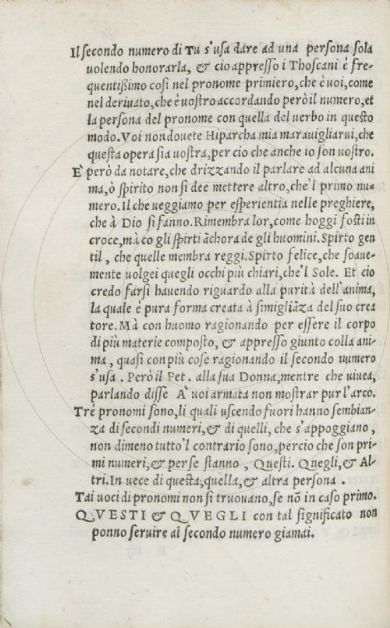 Il secondo numero di Tu s'usa dare ad una persona sola
uolendo honorarla, & cio appresso i Thoscani è fre-
quentißimo cosi nel pronome primiero, che è uoi, come
nel deriuato, che è uostro accordando però il numero, et
la persona del pronome con quella del uerbo in questo
modo. Voi non douete Hiparcha mia marauigliarui, che
questa opera sia uostra, per cio che anche io son uostro.
E' però da notare, che drizzando il parlare ad alcuna ani
ma, ò spirito non si dee mettere altro, che'l primo nu-
mero. Il che ueggiamo per esperientia nelle preghiere,
che à Dio si fanno. Rimembra lor, come hoggi fosti in
croce, mà co gli spirti ãchora de gli huomini. Spirto gen
til, che quelle membra reggi. Spirto felice, che soaue-
mente uolgei quegli occhi più chiari, che'l Sole. Et cio
credo farsi hauendo riguardo alla purità dell'anima,
la quale è pura forma creata à simigliãza del suo crea
tore. Mà con huomo ragionando per essere il corpo
di più materie composto, & appresso giunto colla ani-
ma, quasi con più cose ragionando il secondo numero
s'usa. Però il Pet. alla sua Donna, mentre che uiuea,
parlando disse A' uoi armata non mostrar pur l'arco.
Tre pronomi sono, li quali uscendo fuori hanno sembian-
za di secondi numeri, & di quelli, che s'appoggiano,
non dimeno tutto'l contrario sono, percio che son pri-
mi numeri, & per se stanno, Questi. Quegli, & Al-
tri. In uece di questa, quella, & altra persona.
Tai uoci di pronomi non si truouano, se nõ in caso primo.
QVESTI & QVEGLI con tal significato non
ponno seruire al secondo numero giamai.